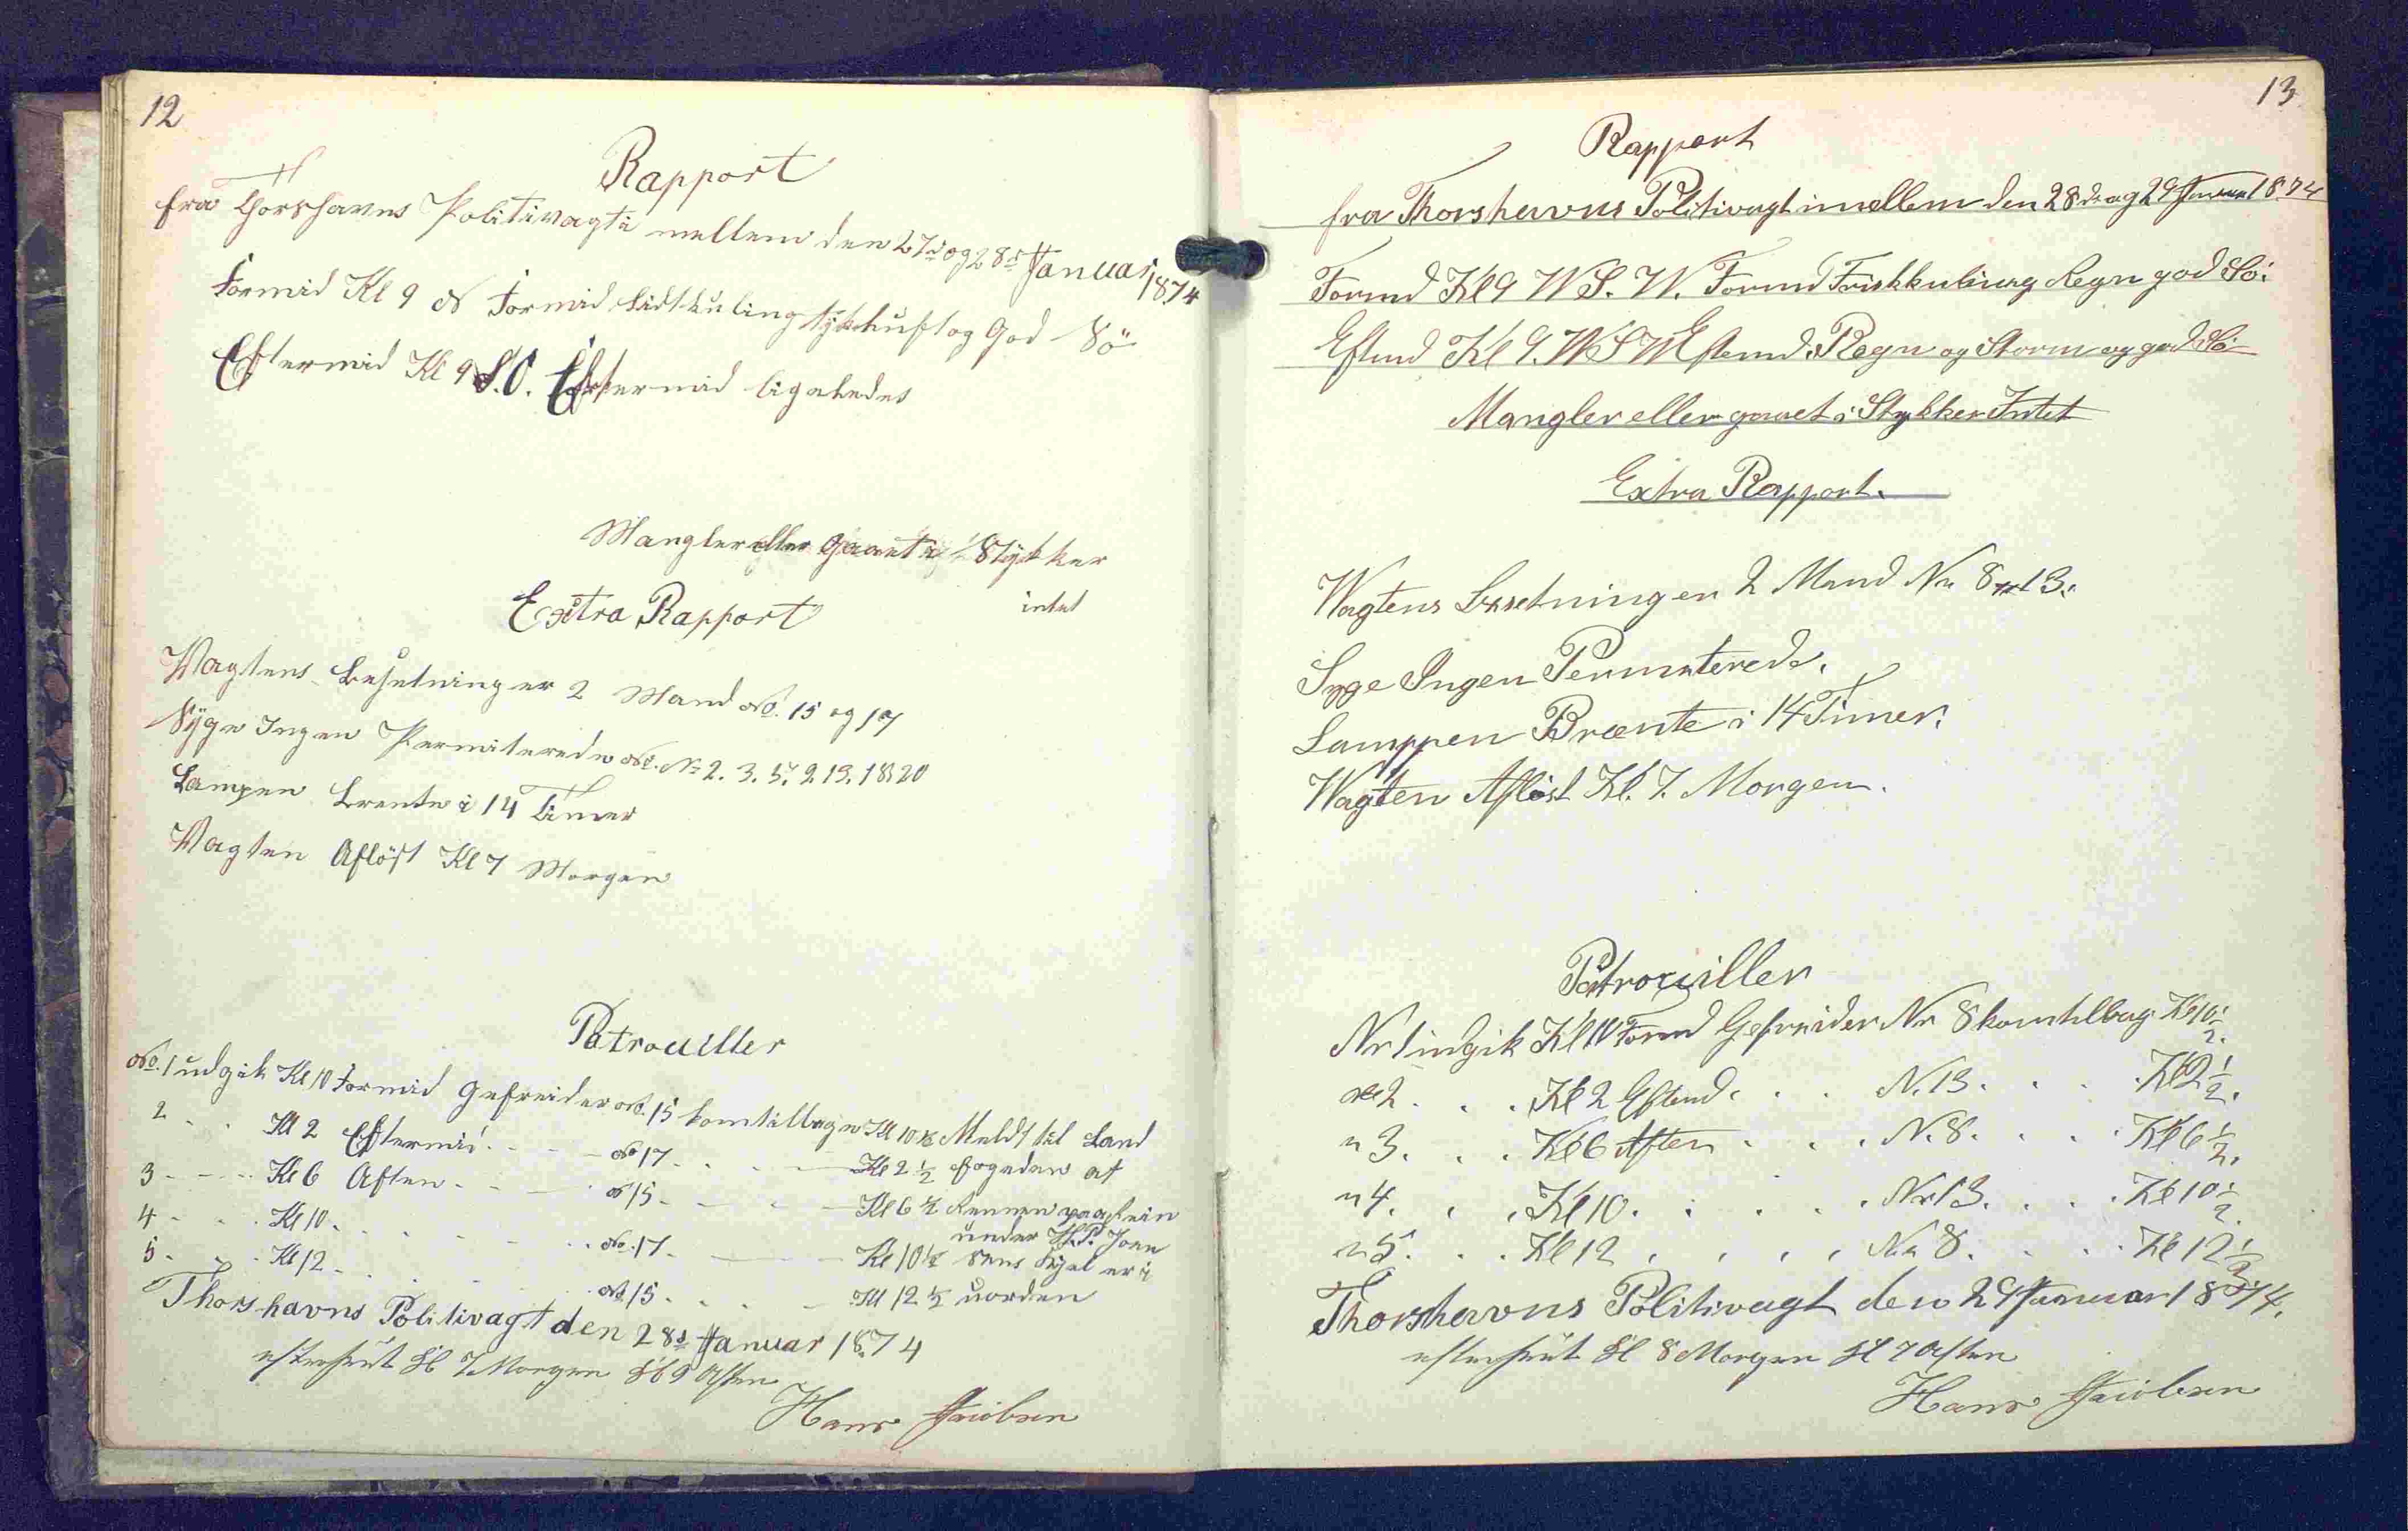 12
Rapport
fra Thorshavns Politivagt i mellem den 27d og 28d Januar 1874
Formid Kl 9 N Formid Lidt kuling tykluft og God Sö
Eftermid Kl 9 S.O. Eftermid ligeledes
Mangler eller Gaaet i Stykker
intet
Extra Rapport
Vagtens Besetning er 2 Mand No. 15 og 17
Syge Ingen Permiterede No. 2. 3. 5. 9. 13. 18 20
Lampen Brente i 14 Timer
Vagten Aflöst Kl 7 Morgen
Patrouiller
No. 1 udgik Kl 10 Formid Gefreider No. 15 kom tilbage Kl 10 ½ Meldt til Land
2 . . Kl 2 Eftermid. - - - No 17 - . - - Kl 2 ½ fogeden at
3 - - - - Kl 6 Aften - - - No 15 - - - - Kl 6 ½ Rennen
4 - . . Kl 10 . - - - . . No. 17 - - - Kl 10 ½
under H.P. Joen
sens er i
5 - . - . Kl 12 - . - . No. 15 . . . - Kl 12 ½ uorden
Thorshavns Politivagt den 28d Januar 1874
efterseet Kl 7 Morgen Kl 9 Aften
Hans Jacobsen
13
Rapport
fra Thorshavns Politivagt i mellem den 28de og 29 Januar 1874
Formd Kl 9 W.S.W. Formd Frisk kuling Regn god Sö.
Eftmd Kl 9. W S W Eftemd. Regn og Storm og god Sö
Mangler eller gaaet i Stykker Intet
Extra Rapport.
Wagtens Besetning er 2 Mand Nr 8 13.
Syge Ingen Permiterede.
Lamppen Brænte i 14 Timer.
Wagten Aflöst Kl. 7. Morgen.
Patrouiller
Nr 1 indgik Kl 10 Formd Gefreider Nr 8 kom tilbag Kl 10 ½.
Nr 2 . . . Kl 2 Eftmd . . . N. 13. . . . Kl 2 ½.
" 3. . . . Kl 6 Aften . . . N. 8. . . . Kl 6 ½.
" 4. . . . Kl 10. . . . . Nr 13. . . . Kl 10 ½.
" 5. . . . Kl 12 . . . . . Nr 8. . . . Kl 12 ½
Thorshavns Politivagt den 29 Januar 1874.
efterseet Kl 8 Morgen Kl 7 Aften
Hans Jacobsen